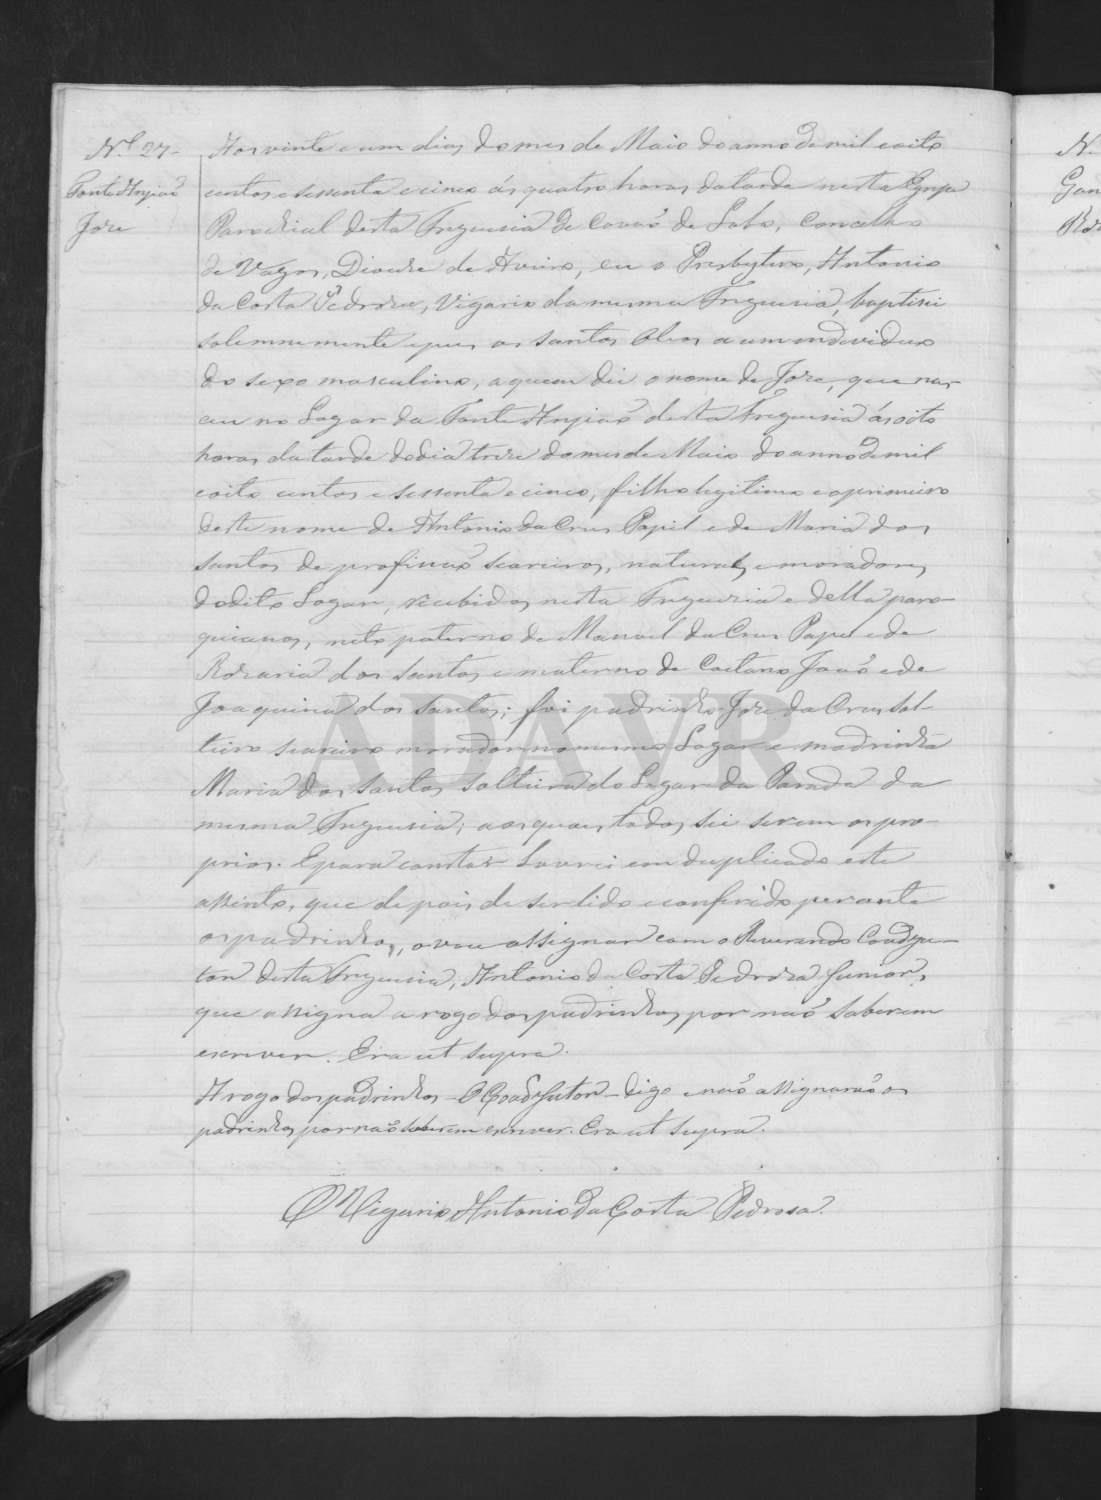 Nº 27-
Fonte Anjiaõ
Joze
Aos vinte e um dias do mes de Maio do anno de mil e oito
centos e sessenta e cinco ás quatro horas da tarde nesta Egreja
Parochial desta Freguesia de Covaõ de Lobo, Concelho
de Vagos, Diocese de Aveiro, eu o Presbytero, Antonio
da Costa Pedroza, Vigario da mesma Freguesia, baptisei
solemnemente e pus os santos Oleos a um individuo
do sexo masculino, a quem dei o nome de Joze, que nas-
ceu no Lugar da Fonte Anjiaõ desta Freguesia ás oito
horas da tarde do dia treze do mes de Maio do anno de mil
e oito centos e sessenta e cinco, filho legitimo e o primeiro
deste nome de Antonio da Crus Papel e de Maria dos
santos de profissaõ seareiros, naturaes e moradores
do dito Lugar, recebidos nesta Freguesia e della paro-
quianos, neto paterno de Manoel da Crus Papel e de
Rozaria dos santos e materno de Caetano Joaõ e de
Joaquina dos santos; foi padrinho Joze da Crus sol-
teiro seareiro morador no mesmo Lugar e madrinha
Maria dos santos solteira do Lugar da Parada da
mesma Freguesia, aos quaes todos sei serem os pro-
prios. E para constar Lavrei em duplicado este
assento, que depois de ser lido e conferido perante
os padrinhos, o vou assignar com o Reverendo Coadju-
tor desta Freguesia, Antonio da Costa Pedroza Junior,
que assigna a rogo dos padrinhos por naõ saberem
escrever. Era ut supra.
A rogo dos padrinhos - O Coadjutor - digo e naõ assignaraõ os
padrinhos por naõ saberem escrever. Era ut supra.
O Vigario Antonio da Costa Pedrosa.
N.
ADAVR